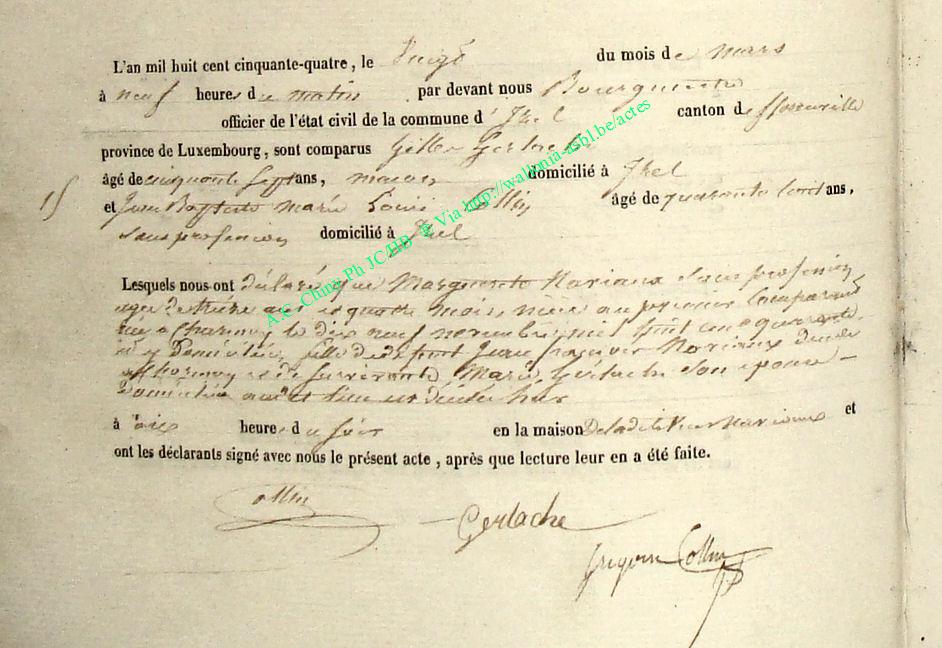 L'an mil huit cent cinquante-quatre, le du mois de mars
à neuf heures du matin par devant nous Bourgmestre
officier de l'état civil de la commune d'Izel canton de florenville
province de Luxembourg, sont comparus Gilles Gerlache
âgé de cinquante sept ans, domicilié à Izel
15
et Jean Baptiste Marie Louis Collin âgé de quarante ans,
sans profession domicilié à Izel
Lesquels nous ont déclaré que Marguerite Noriaux sans profession
agée de treize ans et quatre mois, nièce au premier Comparant
née à Charmoy le dix neuf novembre mil huit cent quarante
et y Domiciliée, fille de défunt Jean Noriaux décédé
à Charmoy et de survivante Marie Gerlache son épouse
Domiciliée audit lieu est décédée hier
à heures du soir en la maison De la dite Veuve Noriaux et
ont les déclarants signé avec nous le présent acte, après que lecture leur en a été faite.
Collin
Gerlache
Grégoire Collin
A.G. China Ph JC/HD & Via http://wallonia-asbl.be/actes